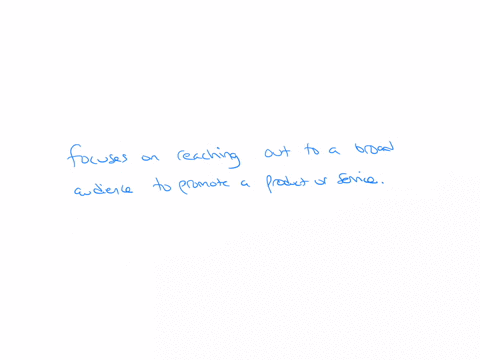 focuses on reaching out to a broad
audience to promote a product or service.